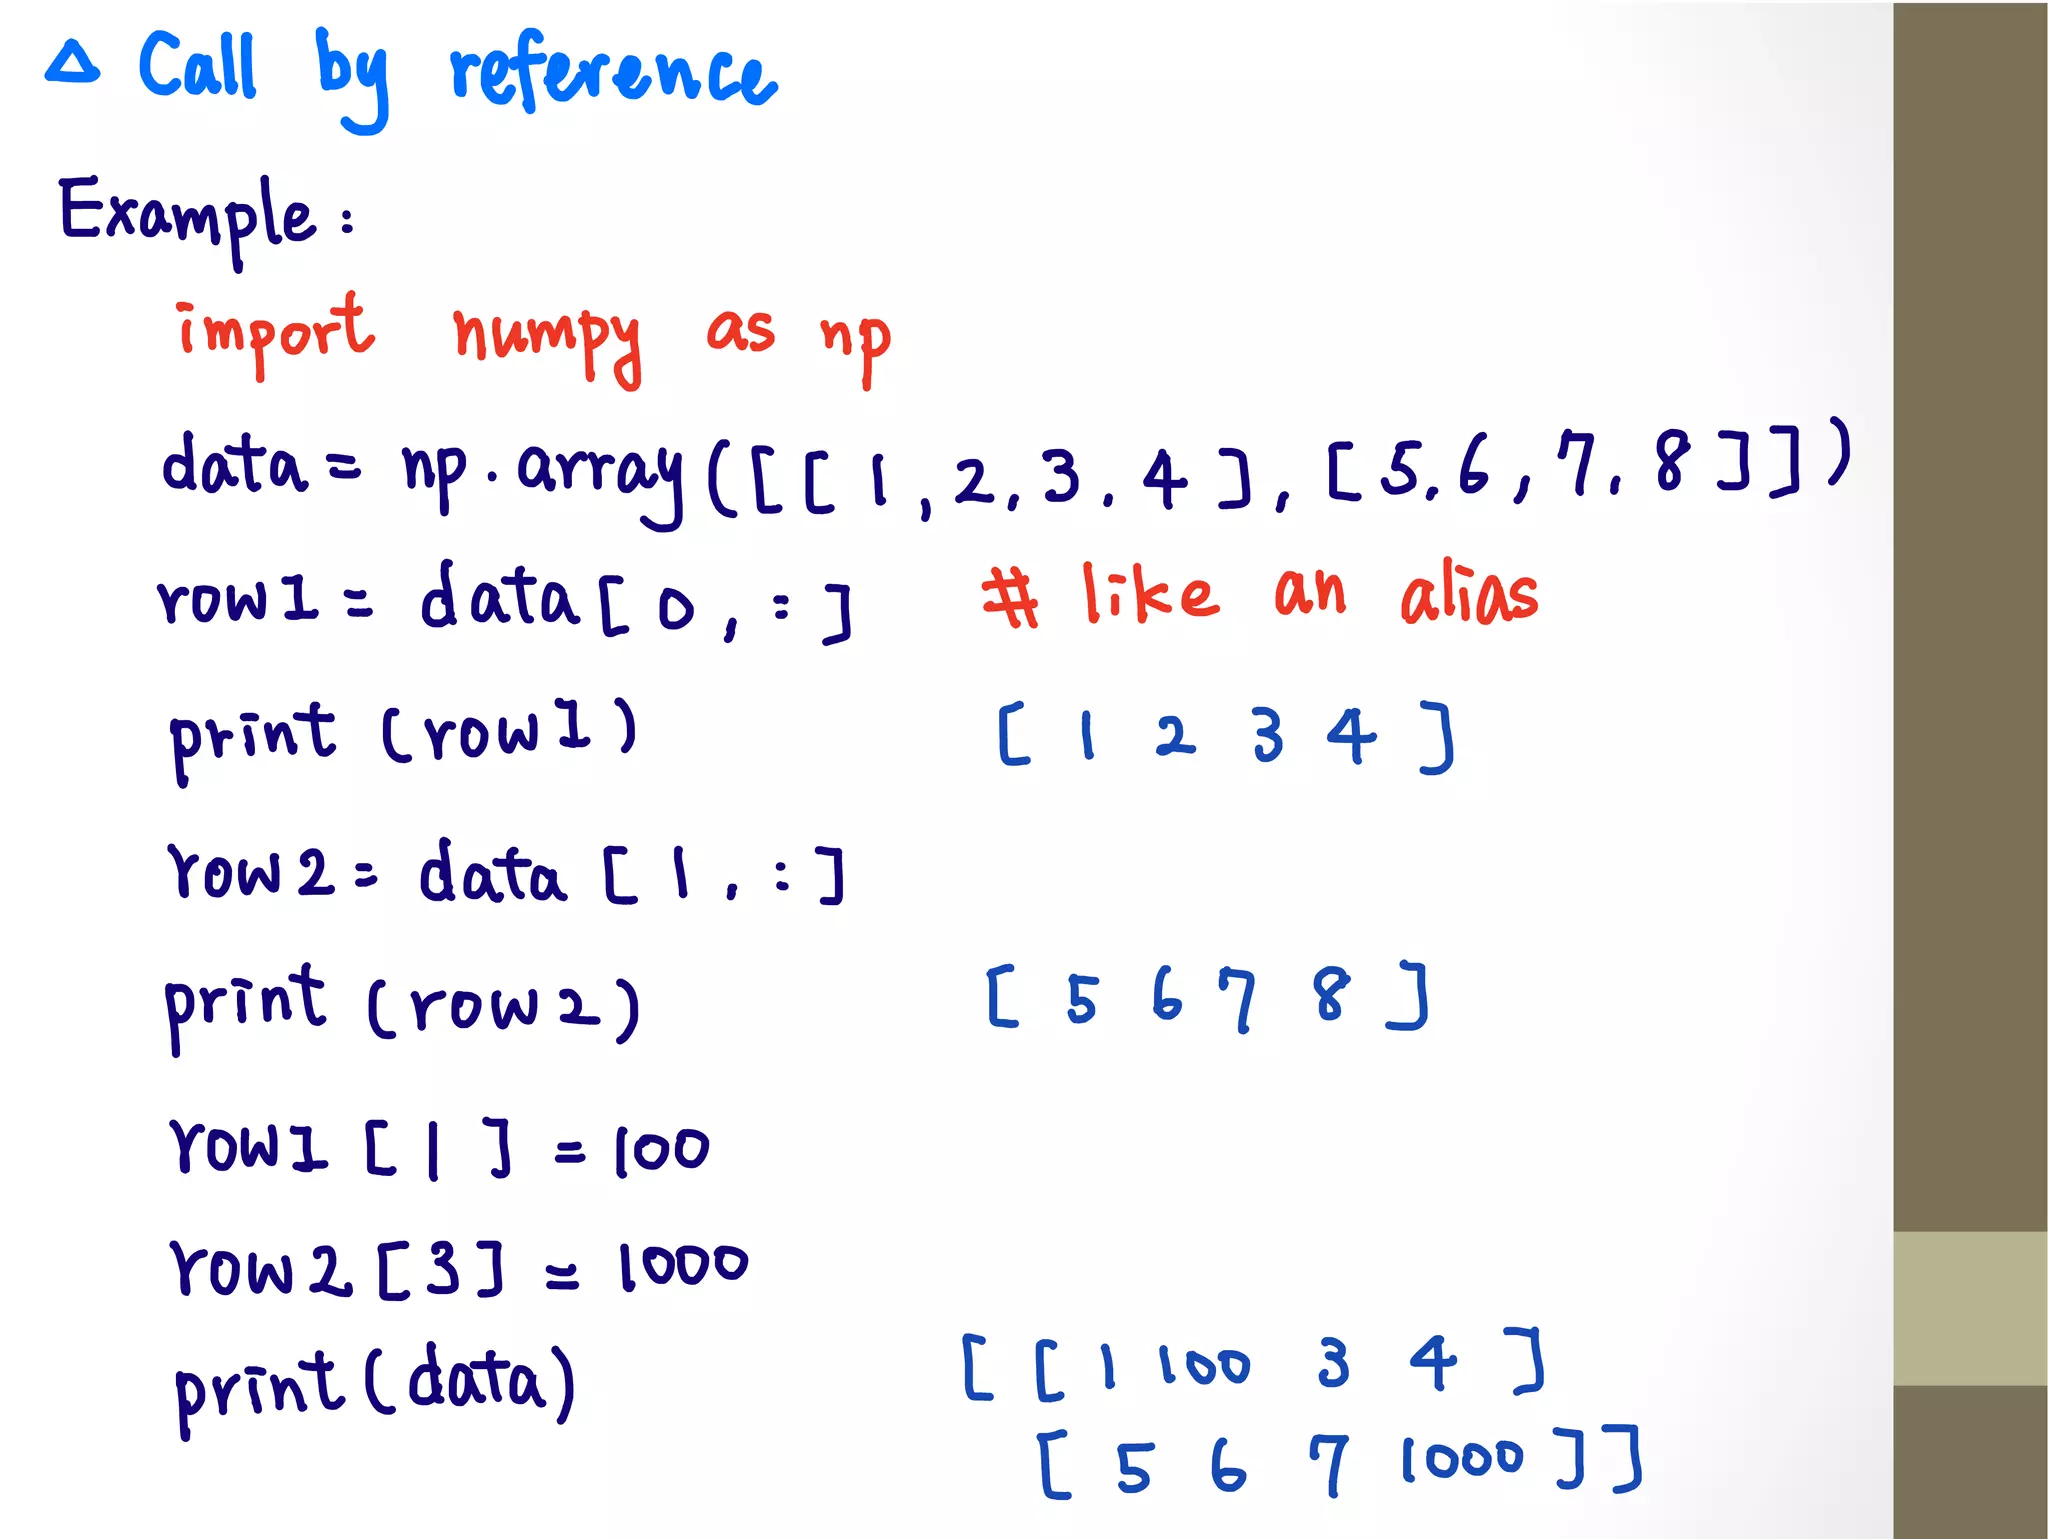 △ Call by reference
Example:
import numpy as np
data = np.array([[1,2,3,4],[5,6,7,8]])
row1 = data[0,:] # like an alias
print(row1) [1 2 3 4]
row2 = data[1,:]
print(row2) [5 6 7 8]
row1[1] = 100
row2[3] = 1000
print(data) [[1 100 3 4]
[5 6 7 1000]]